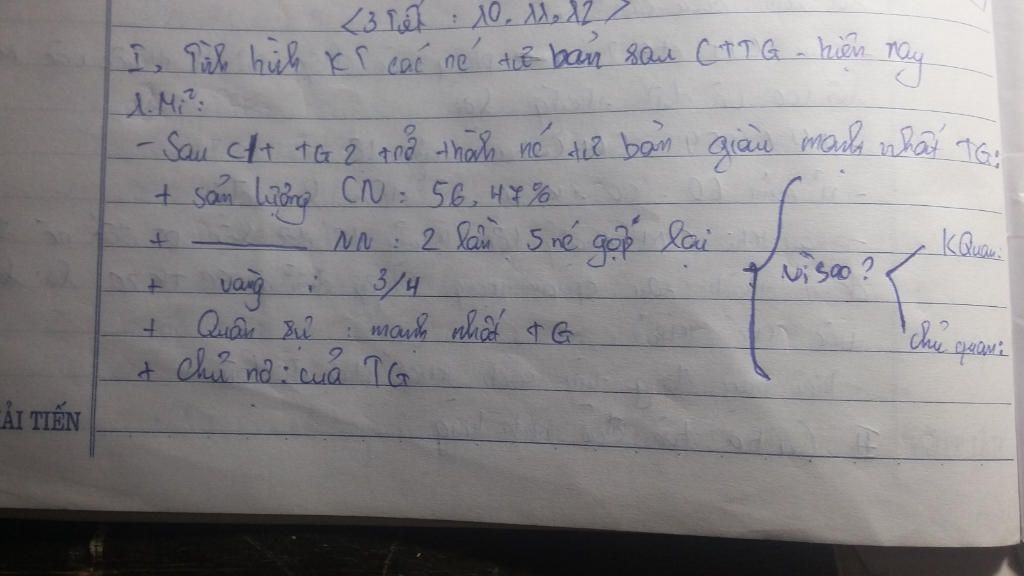 <3 Tiết : 10, 11, 12>
I, Tình hình KT các nc tư bản sau CTTG - hiện nay
1. Mĩ:
- Sau CTTG 2 trở thành nc tư bản giàu mạnh nhất TG:
+ sản lượng CN : 56,47%
+ ——— NN : 2 lần 5 nc gộp lại
+ vàng : 3/4
+ Quân sự : mạnh nhất TG
+ Chủ nợ : của TG
Vì sao?
KQuan:
chủ quan:
ẢI TIẾN